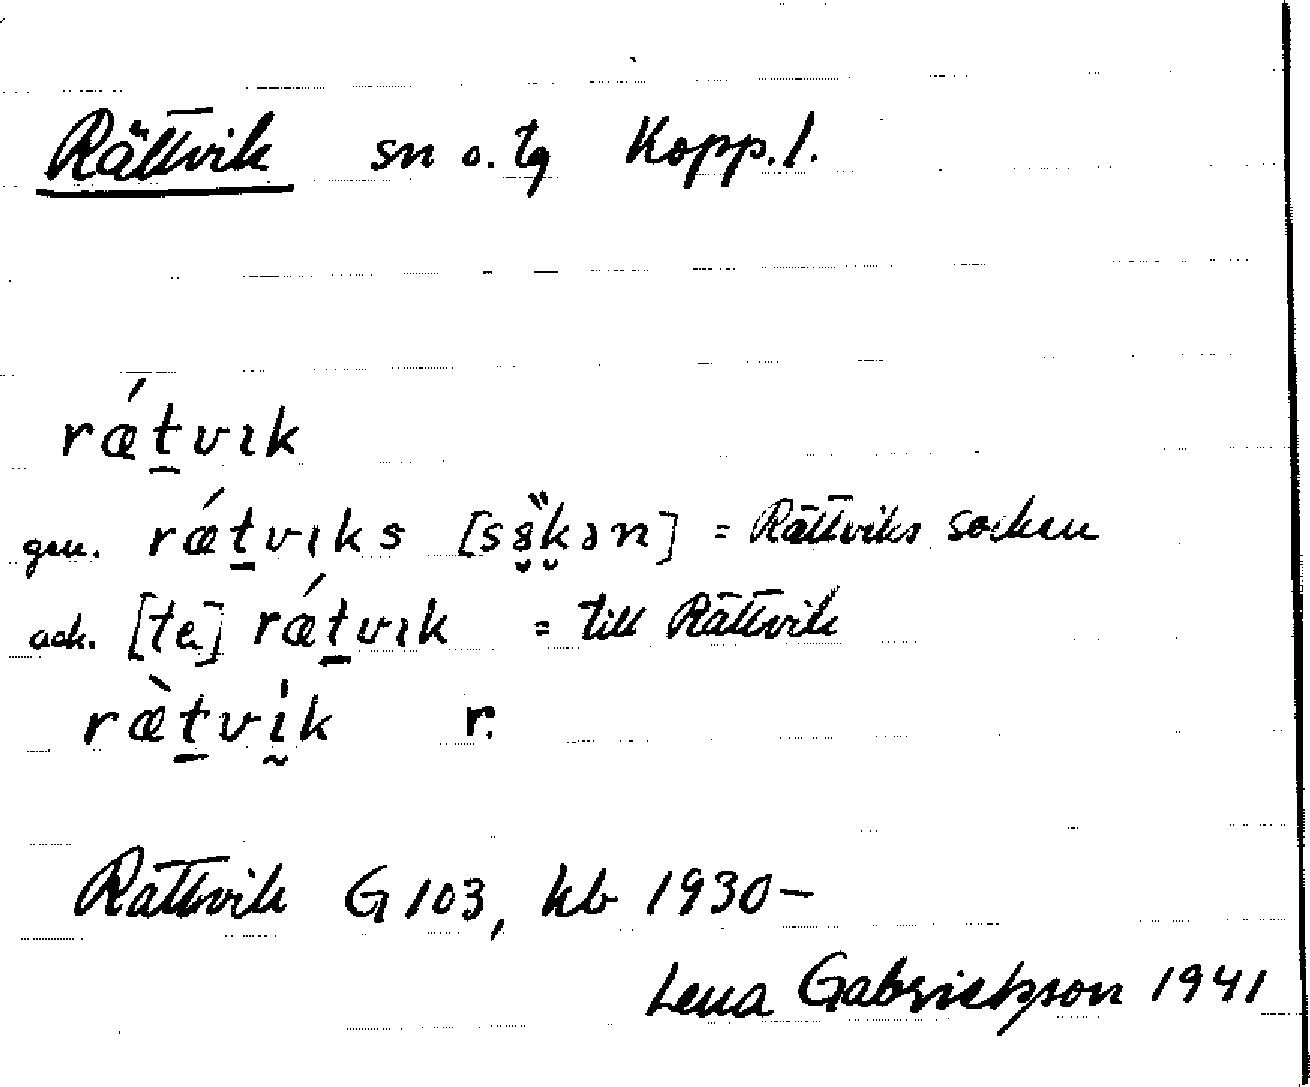 Rättvik sn o. tg Kopp. l.
rǽt̠vık
gen. rǽt̠vıks [sŏ̤̈kən] = Rättviks socken
ack. [te] rǽt̠vık = till Rättvik
ræ̀t̠vı̰̍k r.
Rättvik G 103, kb 1930–
Lena Gabrielsson 1941